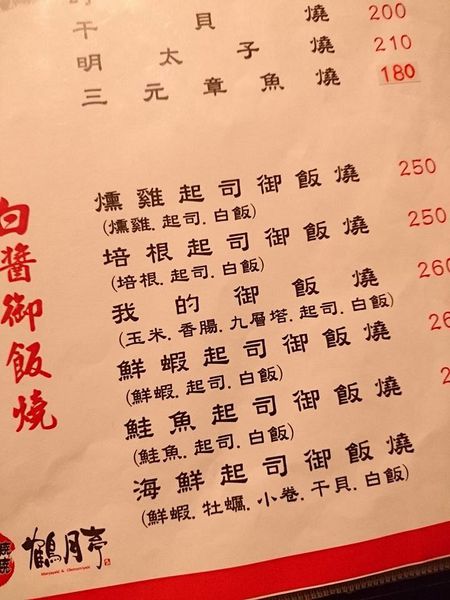 干貝燒 200
明太子燒 210
三元章魚燒 180
白醬御飯燒
燻雞起司御飯燒 250
(燻雞.起司.白飯)
培根起司御飯燒 250
(培根.起司.白飯)
我的御飯燒 260
(玉米.香腸.九層塔.起司.白飯)
鮮蝦起司御飯燒
(鮮蝦.起司.白飯)
鮭魚起司御飯燒
(鮭魚.起司.白飯)
海鮮起司御飯燒
(鮮蝦.牡蠣.小卷.干貝.白飯)
鶴月亭